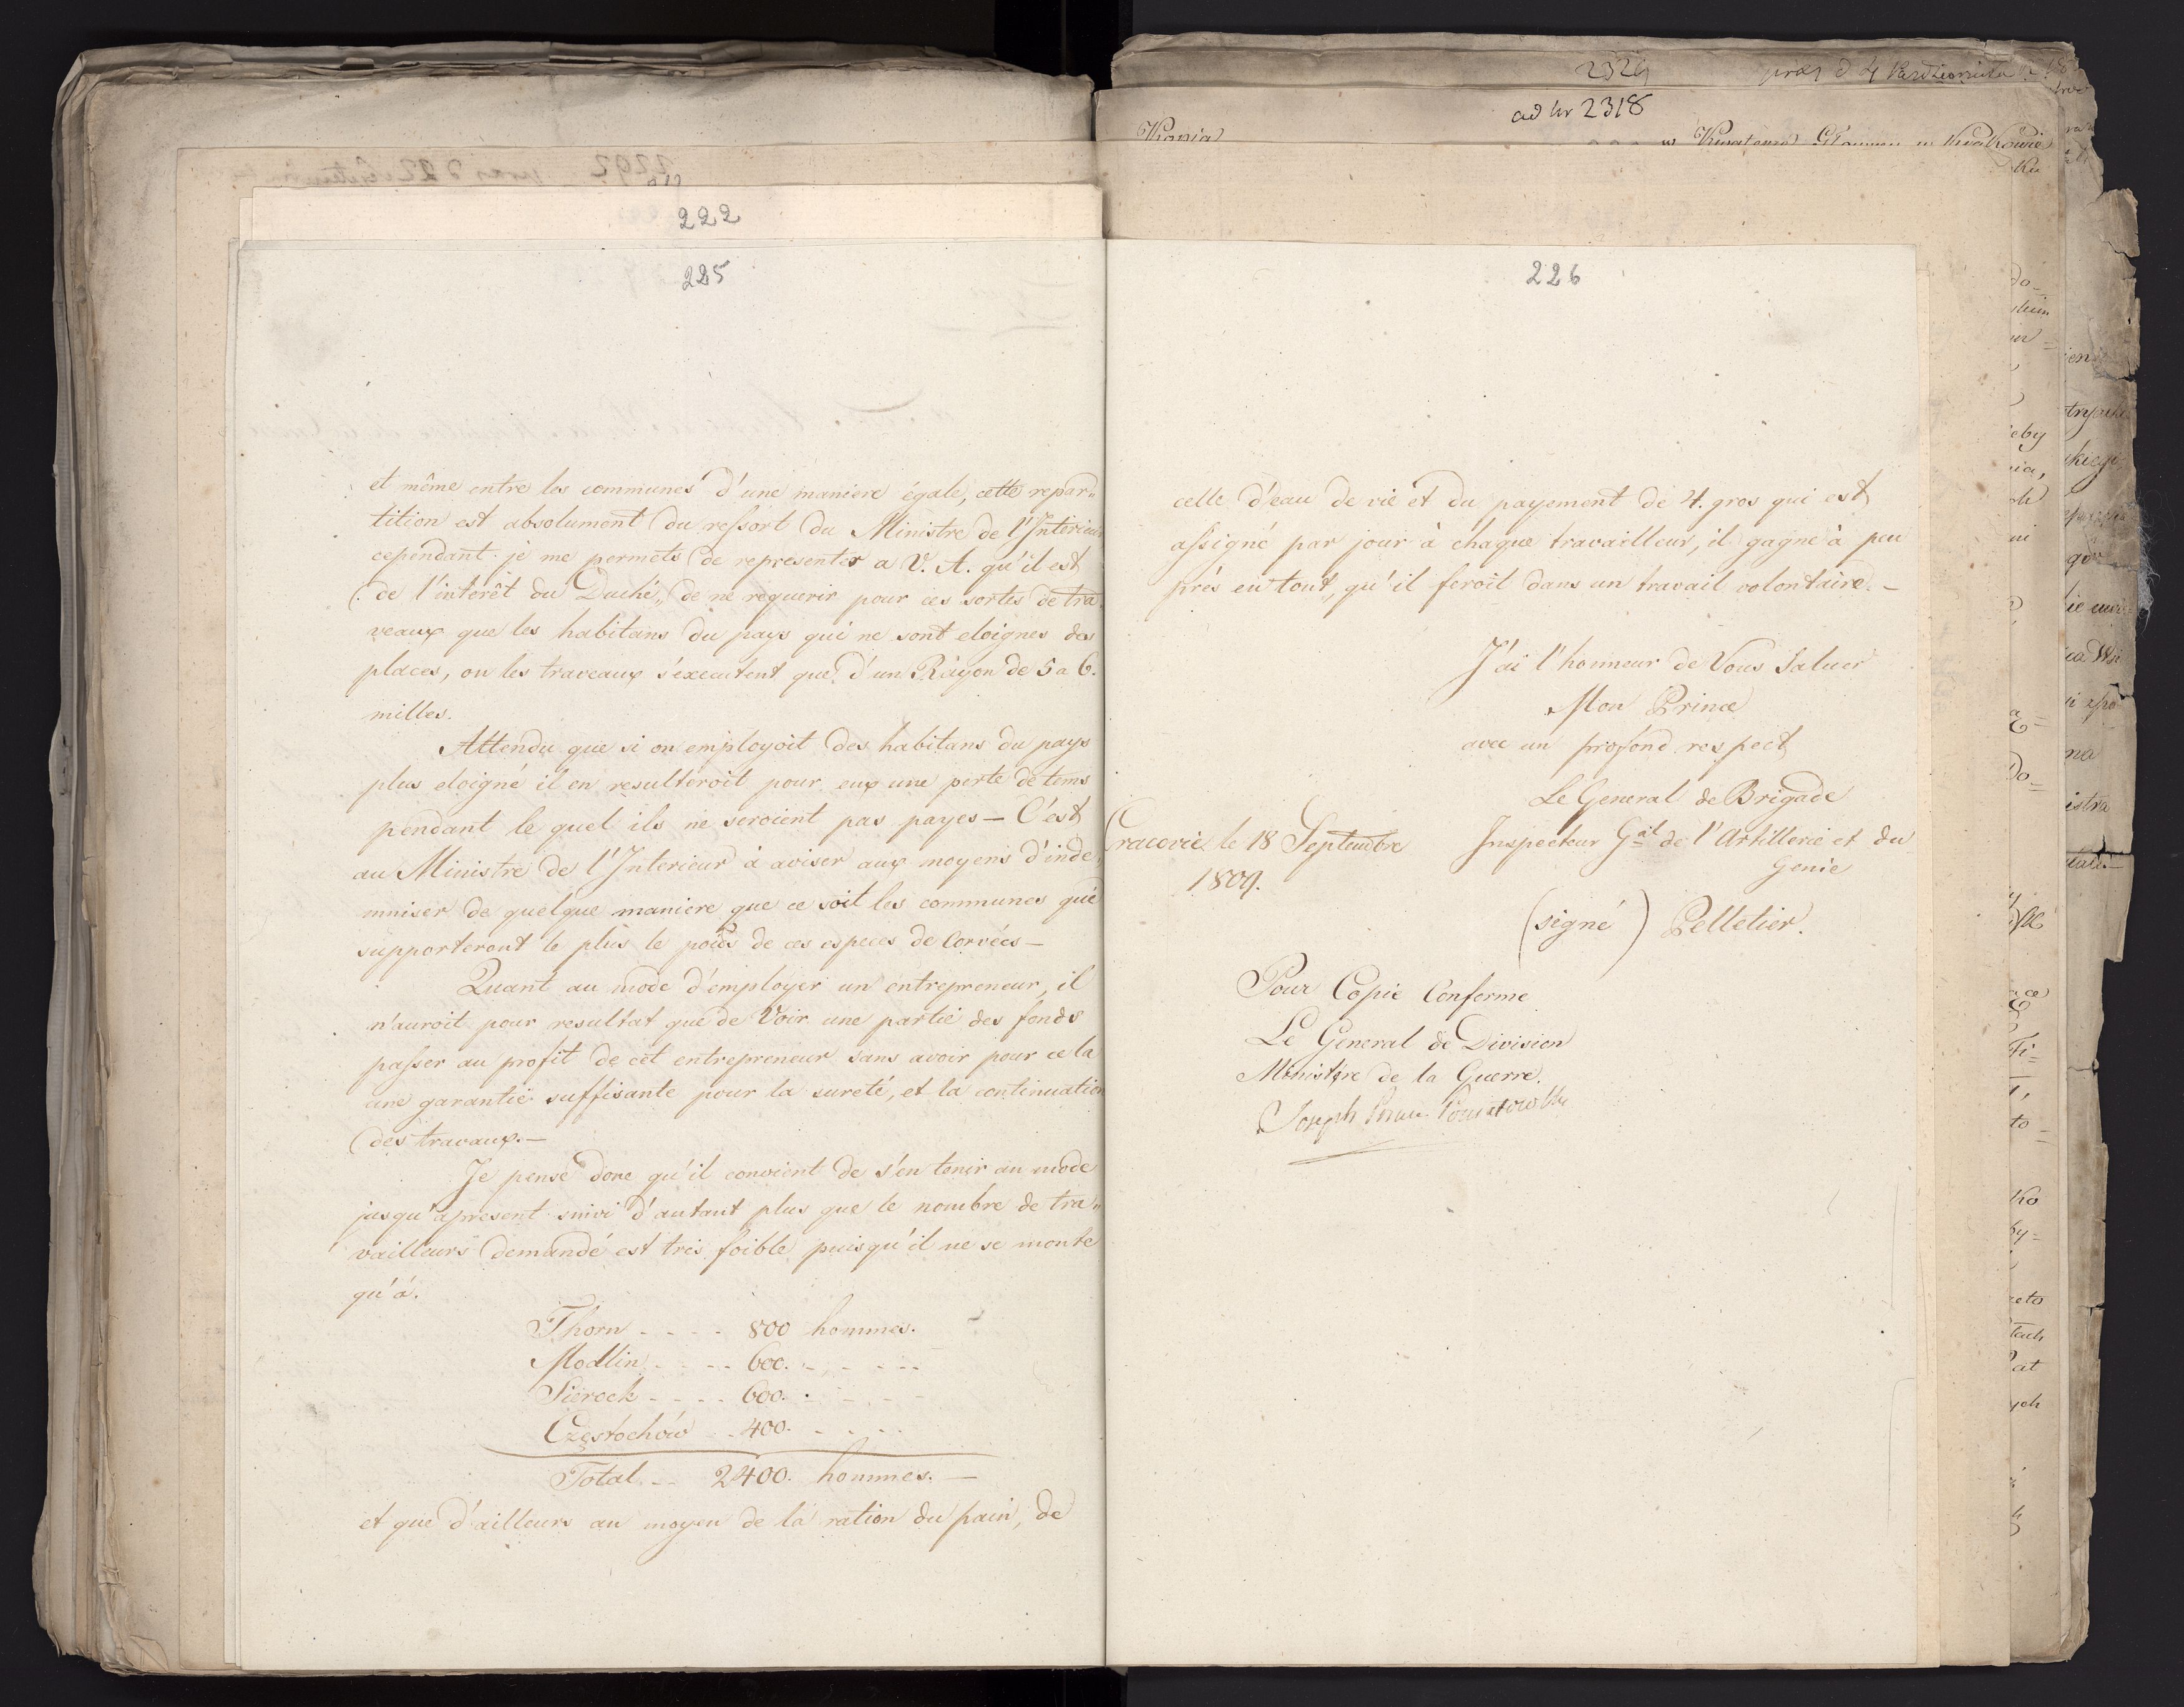 222
225
et même entre les communes d'une maniere égale, cette repar„
tition est absolument du ressort du Ministre de l'Interieur
cependant je me permets de representer a V. A. qu'il est
de l'interêt du Duché„ de ne requerir pour ces sortes de tra
veaux que les habitans du pays qui ne sont eloignes des
places, ou les traveaux s'executent que d'un Rayon de 5 a 6.
milles.
Attendu que si on employoit des habitans du pays
plus eloigné il en resulteroit pour eux une perte de tems
pendant le quel ils ne seroient pas payes — C'est
au Ministre de l'Interieur à aviser aux moyens d'inde„
mniser de quelque maniere que ce soit les communes qui
supporteront le plus le poids de ces especes de Corvées —
Quant au mode d'employer un entrepreneur, il
n'auroit pour resultat que de Voir une partie des fonds
passer au profit de cet entrepreneur sans avoir pour cela
une garantie suffisante pour la sureté, et la continuation
des travaux. —
Je pense donc qu'il convient de s'en tenir au mode
jusqu'apresent suivi d'autant plus que le nombre de tra„
vailleurs demandé est tres foible puisqu'il ne se monte
qu'à.
Thorn - - - - 800 hommes.
Modlin - - - - 600. - - - - -
Sierock - - - - 600. - - - -
Częstochów - - 400. - - - -
Total - - 2400. hommes. —
et que d'ailleurs au moyen de la ration du pain, de
2329
ad Nr 2318
Kopia
226
celle d'eau de vie et du payement de 4. gros qui est
assigné par jour à chaque travailleur, il gagne à peu
près en tout, qu'il feroit dans un travail volontaire. —
J'ai l'honneur de Vous Saluer
Mon Prince
avec un profond respect
Le General de Brigade
Cracovie le 18 Septembre Inspecteur Gal de l'Artillerie et du
1809. Genie
(signé) Pelletier.
Pour Copie Conforme
Le General de Division
Ministere de la Guerre.
Joseph Prince Poniatowski